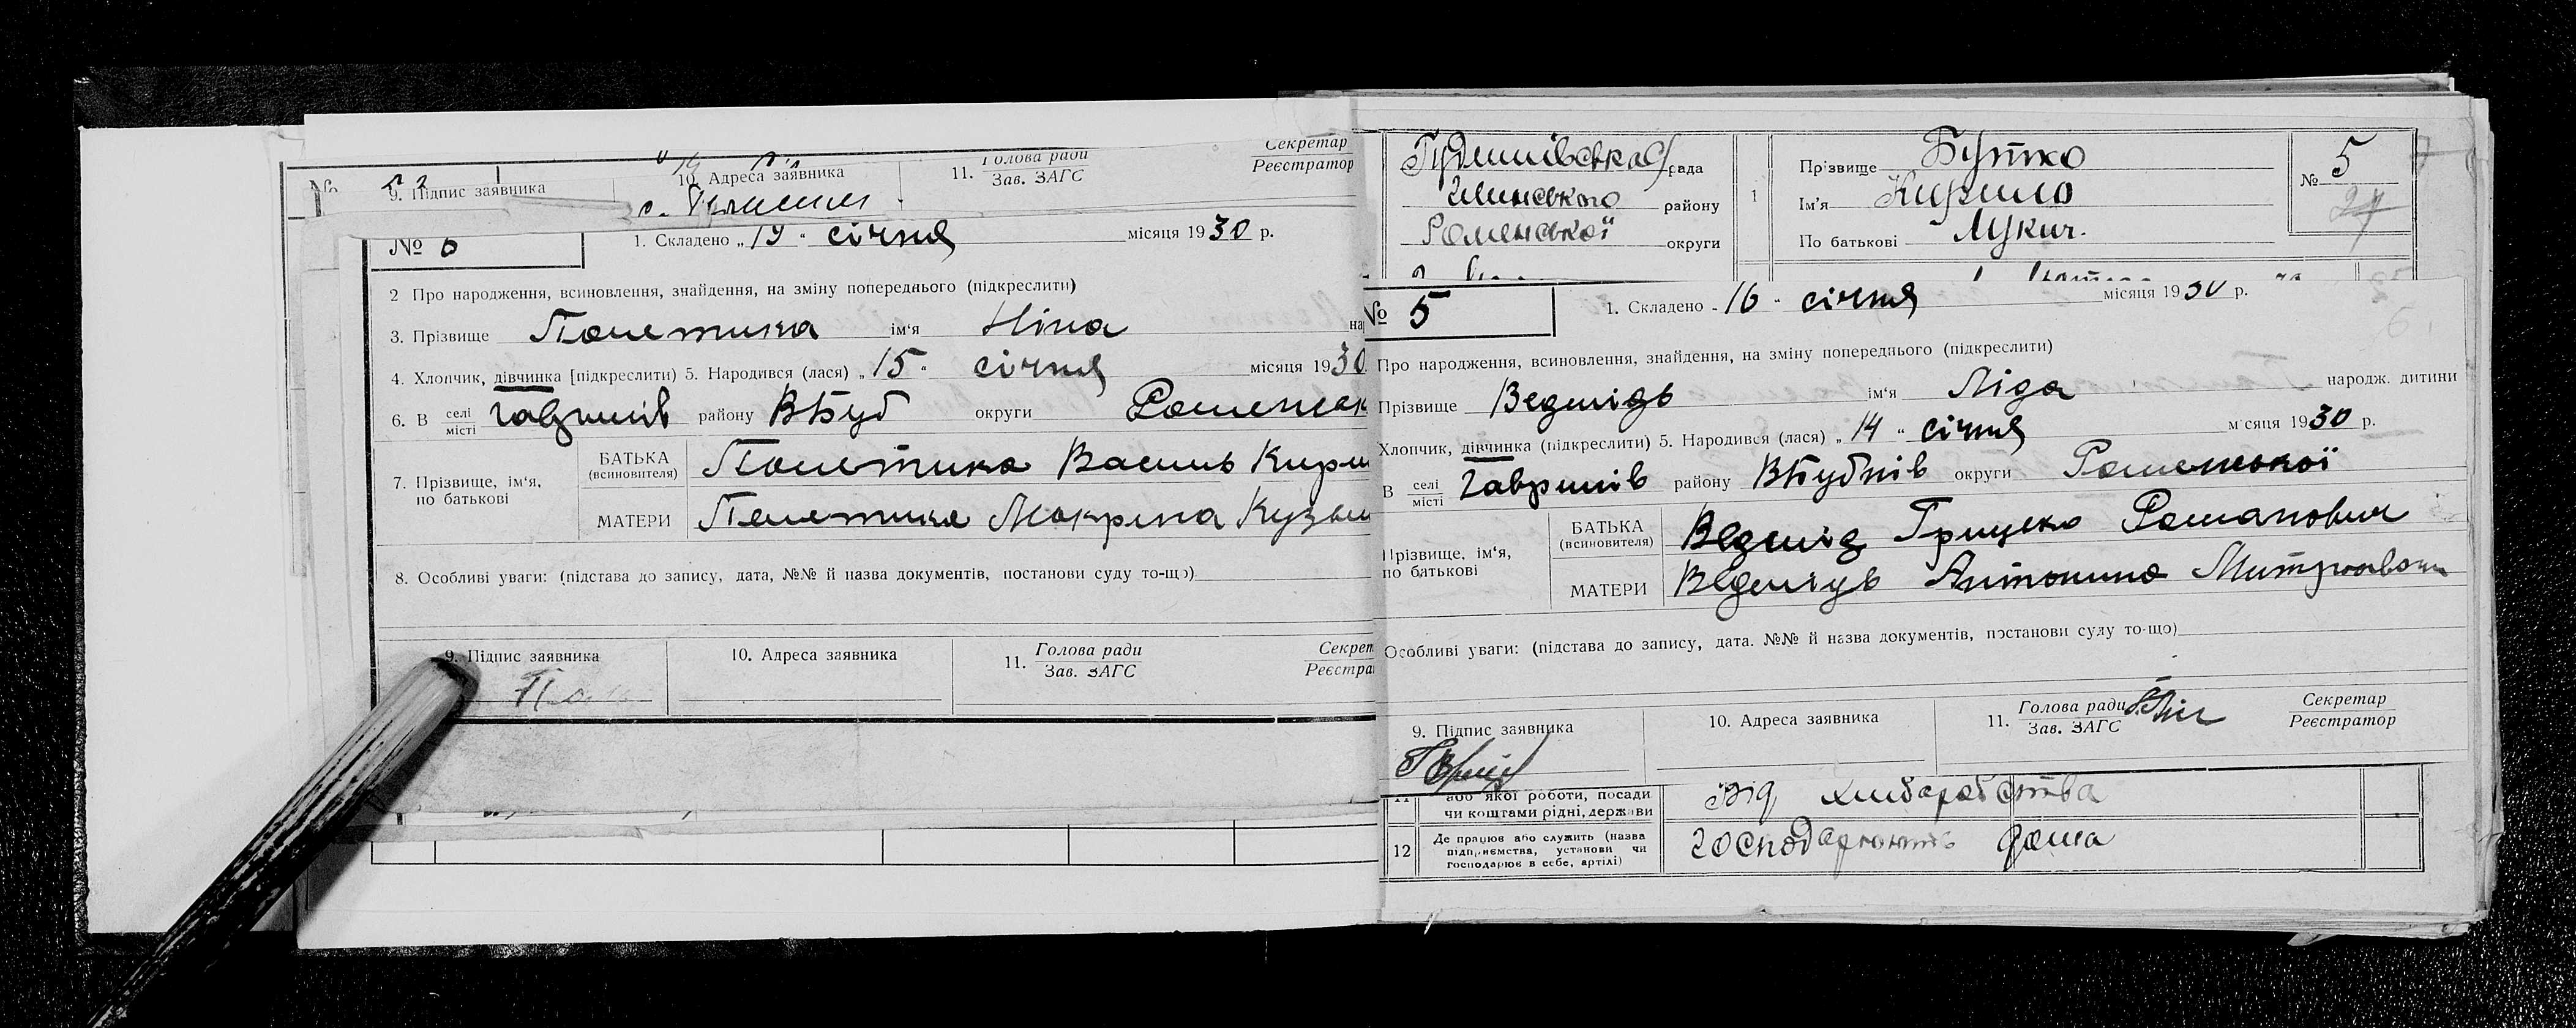 №
9. Підпис заявника
10. Адреса заявника
11. Голова ради
Зав. ЗАГС
Секретар
Реєстратор
с.
№ 6
1. Складено „19“ січня місяця 1930 р.
2 Про народження, всиновлення, знайдення, на зміну попереднього (підкреслити)
3. Прізвище Полетика ім'я Ніна на
4. Хлопчик, дівчинка [підкреслити) 5. Народився (лася) „15“ січня місяця 1930
6. В селі
місті Гаврилів району ВБуб округи Роменськ
7. Прізвище, ім'я,
по батькові
БАТЬКА
(всиновителя) Полетика Василь Кири
МАТЕРИ Полетика Мокрина Кузьм
8. Особливі уваги: (підстава до запису, дата, №№ й назва документів, постанови суду то-що)
9. Підпис заявника
10. Адреса заявника
11. Голова ради
Зав. ЗАГС
Секрет
Реєстра
рада
Глинського району
Роменської округи
1
Прізвище Бутко
Ім'я Кирило
По батькові Лукич.
№ 5
24
№ 5
1. Складено „16“ січня місяця 1930 р.
Про народження, всиновлення, знайдення, на зміну попереднього (підкреслити)
Прізвище Ведмідь ім'я Ліда народж. дитини
Хлопчик, дівчинка (підкреслити) 5. Народився (лася) „14“ січня місяця 1930 р.
В селі
місті Гаврилів району ВБубнів округи Роменської
Прізвище, ім'я,
по батькові
БАТЬКА
(всиновителя) Ведмідь Грицько Романович
МАТЕРИ Ведмідь Антонина Митровна
Особливі уваги: (підстава до запису, дата. №№ й назва документів, постанови суду то-що)
9. Підпис заявника
10. Адреса заявника
11. Голова ради
Зав. ЗАГС
Секретар
Реєстратор
11 або якої роботи, посади
чи коштами рідні, держави
від хліборобства
12 Де працює або служить (назва
підприємства, установи чи
господарює в себе, артілі)
господарюють дома